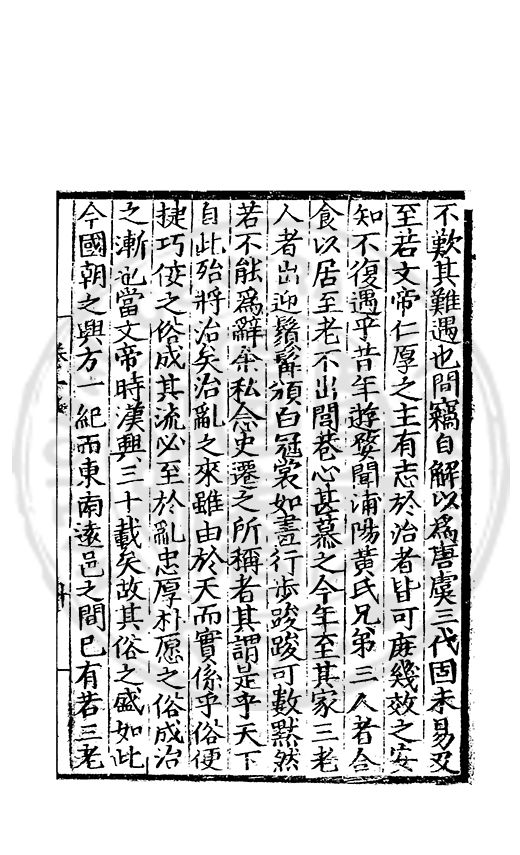 不歎其難遇也間竊自解以為唐虞三代固未易及
至若文帝仁厚之主有志於治者皆可庶幾效之安
知不復遇乎昔年遊婺聞浦陽黃氏兄弟三人者合
食以居至老不出閭巷心甚慕之今年至其家三老
人者出迎鬚髯頒白冠裳如畫行步踆踆可數黙然
若不能為辭余私念史遷之所稱者其謂是乎天下
自此殆將治矣治亂之來雖由於天而實係乎俗便
捷巧佞之俗成其流必至於亂忠厚朴愿之俗成治
之漸也當文帝時漢興三十載矣故其俗之盛如此
今國朝之興方一紀而東南遠邑之間已有若三老